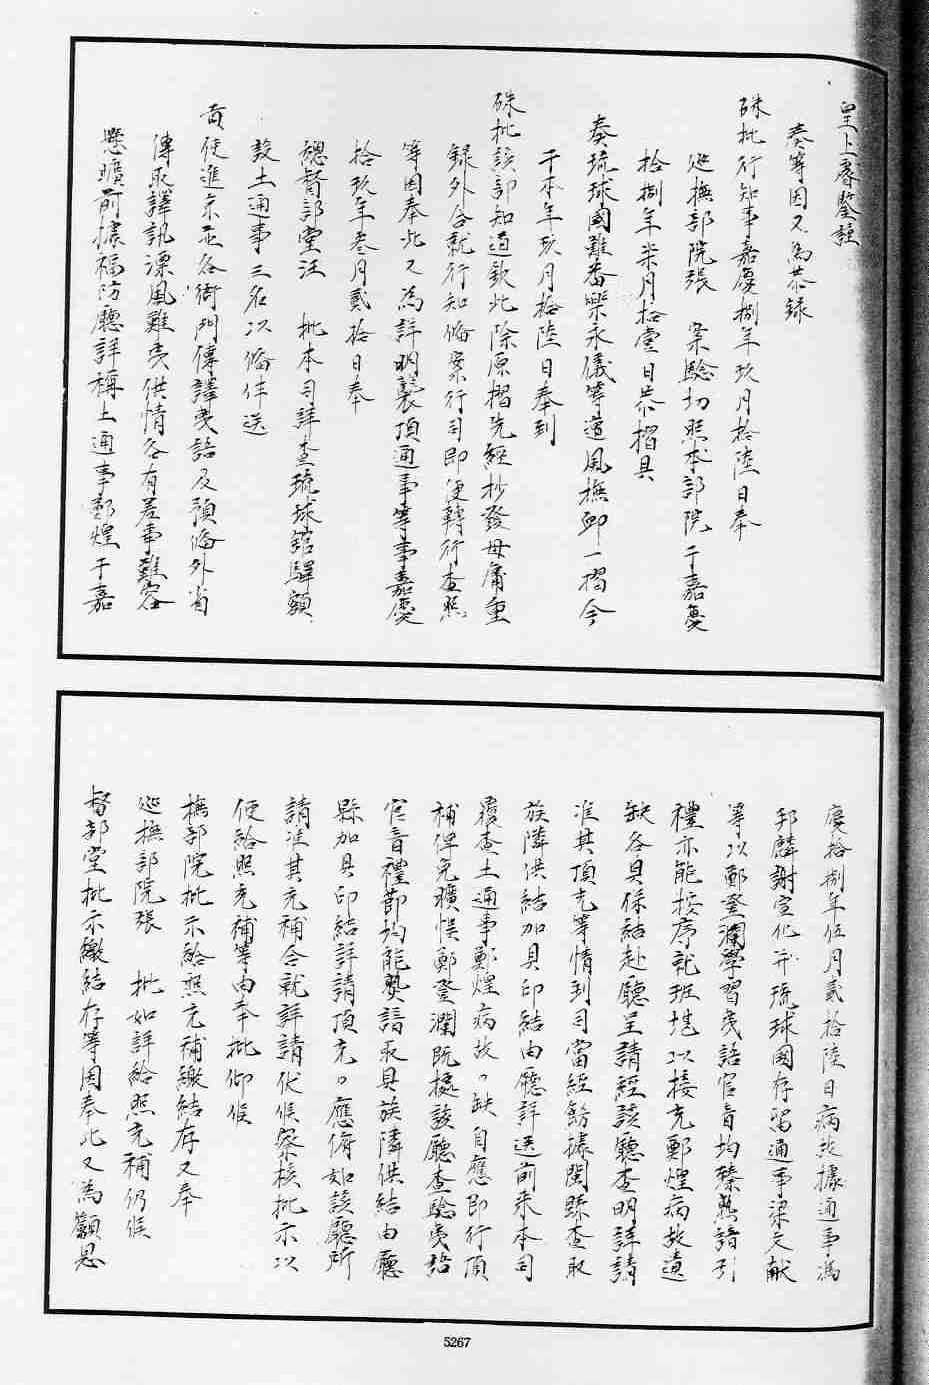 皇上睿鑒謹
奏等因又為恭錄
硃批行知事嘉慶捌年玖月拾陸日奉
巡撫部院張　案驗切照本部院于嘉慶
拾捌年柒月拾壹日恭摺具
奏琉球國難番樂永儀等遭風撫卹一摺今
于本年玖月拾陸日奉到
硃批該部知道欽此除原摺先經抄發毋庸重
錄外合就行知俻案行司即便轉行查照
等因奉此又為詳明襲頂通事等事嘉慶
拾玖年叁月貳拾日奉
總督部堂汪　批本司詳查琉球館驛額
設土通事三名以俻伴送
貢使進京並各衙門傳譯夷語及預俻外省
傳取譯訊漂風難夷供情各有差事難容
懸曠前據福防廳詳稱土通事鄭煌于嘉
慶拾捌年伍月貳拾陸日病故據通事馮
邦麟謝宣化并琉球國存留通事梁文献
等以鄭登瀾學習夷語官音均臻熟諳引
禮亦能按序就班堪以接充鄭煌病故遺
缺各具保結赴廳呈請經該廳查明詳請
准其頂充等情到司當經飭據閩縣查取
族隣洪結加具印結由廳詳送前來本司
覆查土通事鄭煌病故。缺自應即行頂
補俾免曠悞鄭登瀾既據該廳查驗夷語
官音禮節均能嫺諳取具族隣供結由廳
縣加具印結詳請頂充。應俯如該廳所
請准其充補合就詳請伏候察核批示以
便給照充補等由奉批仰候
撫部院批示給照充補繳結存又奉
巡撫部院張　批如詳給照充補仍候
督部堂批示繳結存等因奉此又為籲恩
5267